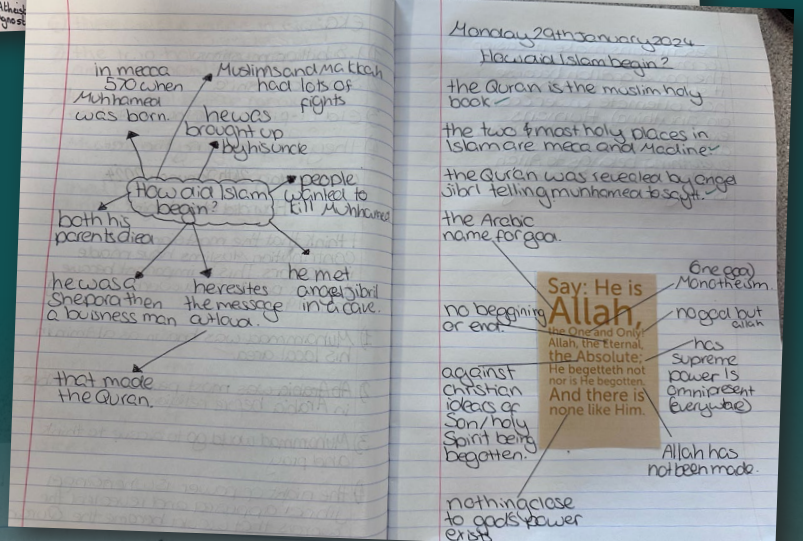 Atheist
in mecca
570 when
Muhhamed
was born.
Muslims and Makkah
had lots of
fights
he was
brought up
by his uncle
How did Islam
begin?
people
wanted to
kill Muhhamed
both his
parents died
he was a
Shepard then
a buisness man
he resites
the message
outloud.
he met
angel jibril
in a cave.
that made
the Quran.
Monday 29th January 2024
How did Islam begin?
the Quran is the muslim holy
book
the two most holy places in
Islam are meca and Madina
the Quran was revealed by angel
jibrl telling muhhamed to say it.
the Arabic
name for god.
(one god)
Monotheism.
no beggining
or end.
no god but
allah
against
christian
ideas of
Son/holy
Spirit being
begotten.
has
supreme
power Is
omnipresent
(everywhere)
Say: He is
Allah,
the One and Only!
Allah, the Eternal,
the Absolute;
He begetteth not
nor is He begotten.
And there is
none like Him.
Allah has
not been made.
nothing close
to god's power
exists